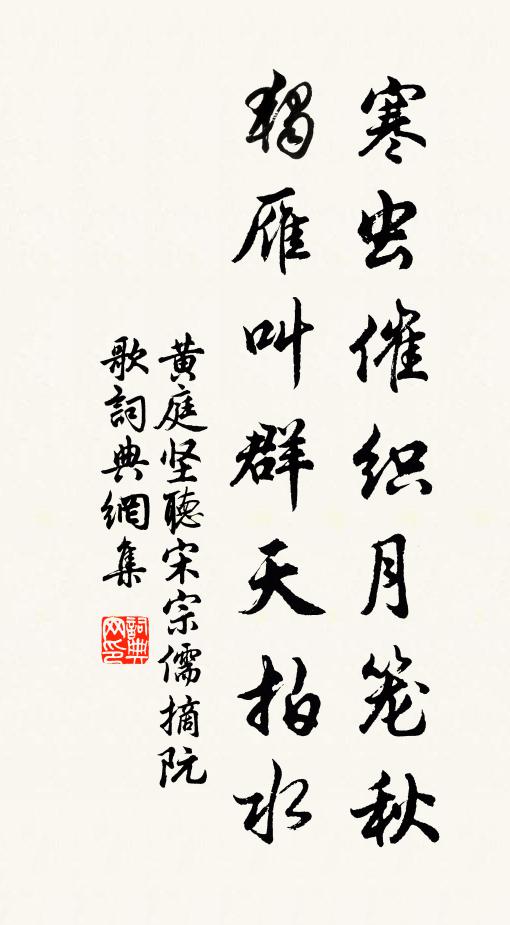 寒虫催织月笼秋
獨雁叫群天拍水
黄庭坚聽宋宗儒摘阮
歌詞典網集
詞典网印